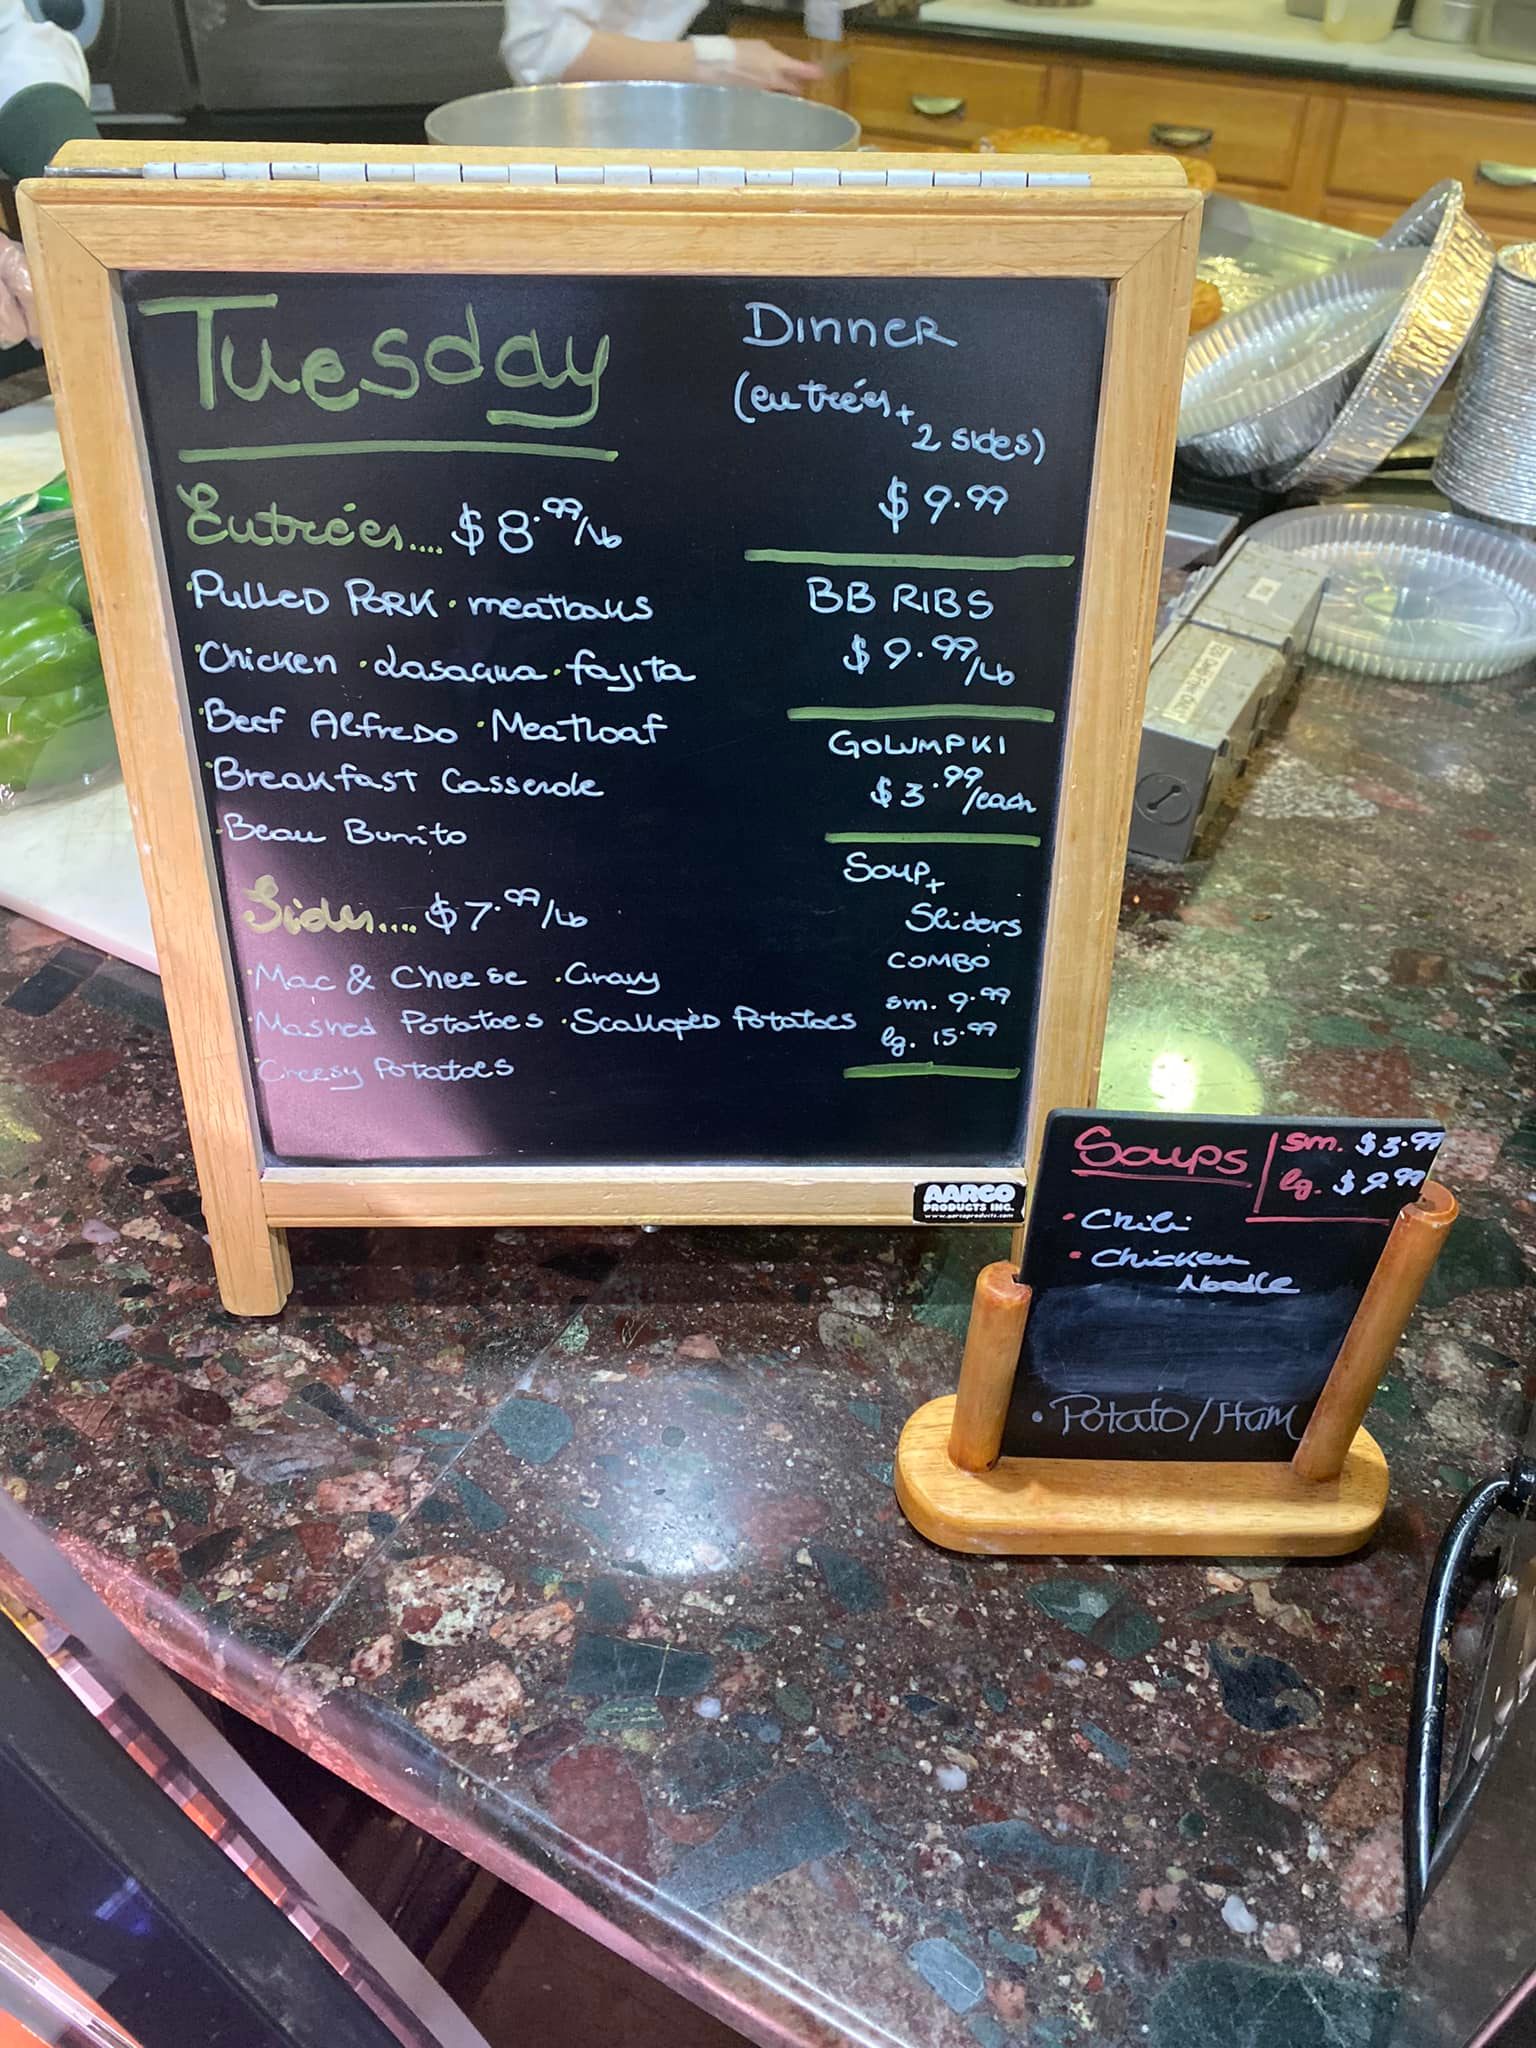 Tuesday
Entrées.... $8.99/lb
·Pulled Pork ·meatballs
·Chicken ·Lasagna ·fajita
·Beef Alfredo ·Meatloaf
·Breakfast Casserole
·Bean Burrito
Sides.... $7.99/lb
·Mac & Cheese ·Gravy
·Mashed Potatoes ·Scalloped Potatoes
·Cheesy Potatoes
Dinner
(entrées +
2 sides)
$9.99
BB RIBS
$9.99/lb
GOLUMPKI
$3.99/each
Soup +
Sliders
COMBO
sm. 9.99
lg. 15.99
AARCO
PRODUCTS INC.
www.aarcoproducts.com
Soups
sm. $3.99
lg. $9.99
• Chili
• Chicken
Noodle
• Potato/Ham